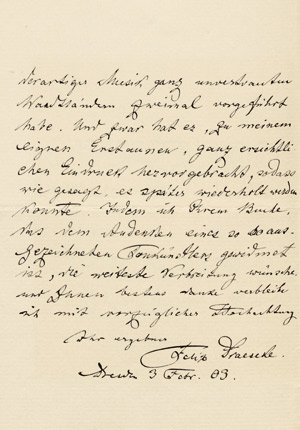 derartiger Musik ganz unvertrauten
zweimal vorgeführt
habe. Und zwar hat es, zu meinem
eignen Erstaunen, ganz ersichtli-
chen Eindruck hervorgebracht, sodass
wie gesagt, es später wiederholt werden
konnte. Indem ich Ihrem Bunde,
das dem Andenken eines so aus-
gezeichneten Tonkünstlers gewidmet
ist, die weiteste Verbreitung wünsche
und Ihnen bestens danke verbleibe
ich mit vorzüglicher Hochachtung
Ihr ergebner
Felix Draeseke.
Dresden 3 Febr. 03.